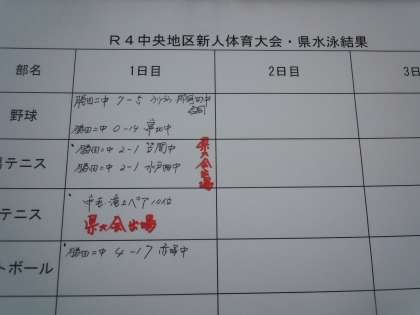 R4中央地区新人体育大会・県水泳結果
部名 1日目 2日目 3日
野球
勝田二中 7-5
勝田二中 0-14
テニス
勝田二中 2-1 笠間中
勝田二中 2-1 水戸四中
県大会出場
テニス
ペア 10位
県大会出場
トボール
勝田二中 4-17 赤塚中